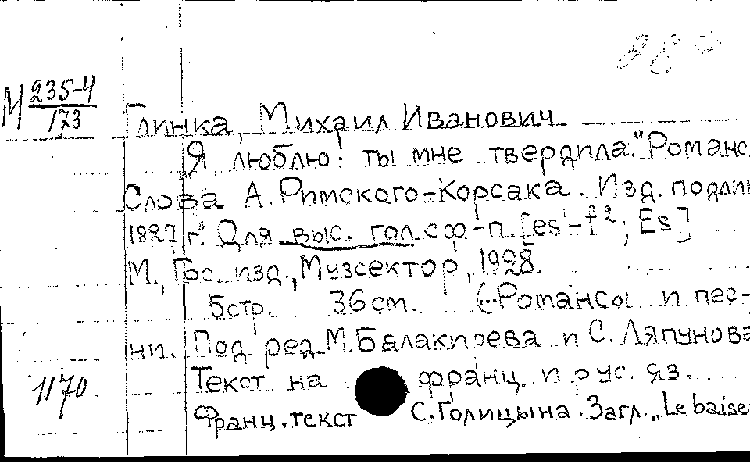 М 235-4/173
Глинка, Михаил Иванович.
"Я люблю: ты мне твердила." Романс
Слова А. Римского-Корсака. Изд. подлин
1827 г. Для выс. гол. с ф-п. [es¹-f²; Es]
М., Гос. изд., Музсектор, 1928.
5 стр. 36 cm. (Романсы и пес-
ни. Под ред. М. Балакирева и С. Ляпунова
Текст на франц. и рус. яз.
1170
Франц. текст С. Голицына. Загл. „Le baise